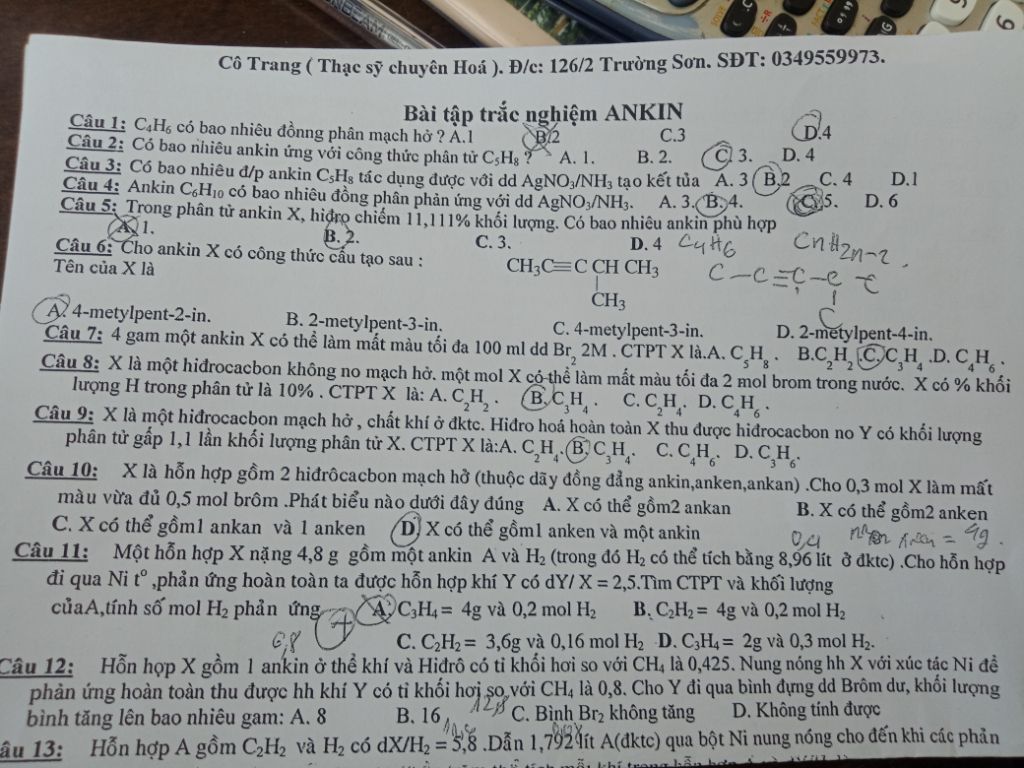 Cô Trang ( Thạc sỹ chuyên Hoá ). Đ/c: 126/2 Trường Sơn. SĐT: 0349559973.
Bài tập trắc nghiệm ANKIN
Câu 1: C₄H₆ có bao nhiêu đồnng phân mạch hở ? A.1 B.2 C.3 D.4
Câu 2: Có bao nhiêu ankin ứng với công thức phân tử C₅H₈ ? A. 1. B. 2. C. 3. D. 4
Câu 3: Có bao nhiêu đ/p ankin C₅H₈ tác dụng được với dd AgNO₃/NH₃ tạo kết tủa A. 3 B.2 C. 4 D.1
Câu 4: Ankin C₆H₁₀ có bao nhiêu đồng phân phản ứng với dd AgNO₃/NH₃. A. 3. B. 4. C. 5. D. 6
Câu 5: Trong phân tử ankin X, hiđro chiếm 11,111% khối lượng. Có bao nhiêu ankin phù hợp
A. 1. B. 2. C. 3. D. 4 C₄H₆ CnH2n-2
Câu 6: Cho ankin X có công thức cấu tạo sau : CH₃C≡C CH CH₃ C-C≡C-C-C
Tên của X là CH₃ C
A. 4-metylpent-2-in. B. 2-metylpent-3-in. C. 4-metylpent-3-in. D. 2-metylpent-4-in.
Câu 7: 4 gam một ankin X có thể làm mất màu tối đa 100 ml dd Br₂ 2M . CTPT X là.A. C₅H₈ . B.C₂H₂ C.C₃H₄ .D. C₄H₆ .
Câu 8: X là một hiđrocacbon không no mạch hở. một mol X có thể làm mất màu tối đa 2 mol brom trong nước. X có % khối
lượng H trong phân tử là 10% . CTPT X là: A. C₂H₂ . B. C₃H₄ . C. C₂H₄. D. C₄H₆ .
Câu 9: X là một hiđrocacbon mạch hở , chất khí ở đktc. Hiđro hoá hoàn toàn X thu được hiđrocacbon no Y có khối lượng
phân tử gấp 1,1 lần khối lượng phân tử X. CTPT X là:A. C₂H₄. B. C₃H₄. C. C₄H₆. D. C₃H₆.
Câu 10: X là hỗn hợp gồm 2 hiđrôcacbon mạch hở (thuộc dãy đồng đẳng ankin,anken,ankan) .Cho 0,3 mol X làm mất
màu vừa đủ 0,5 mol brôm .Phát biểu nào dưới đây đúng A. X có thể gồm2 ankan B. X có thể gồm2 anken
C. X có thể gồm1 ankan và 1 anken D. X có thể gồm1 anken và một ankin 0,4 = 4g .
Câu 11: Một hỗn hợp X nặng 4,8 g gồm một ankin A và H₂ (trong đó H₂ có thể tích bằng 8,96 lít ở đktc) .Cho hỗn hợp
đi qua Ni tᵒ ,phản ứng hoàn toàn ta được hỗn hợp khí Y có dY/ X = 2,5.Tìm CTPT và khối lượng
củaA,tính số mol H₂ phản ứng A. C₃H₄ = 4g và 0,2 mol H₂ B. C₂H₂ = 4g và 0,2 mol H₂
6,8 C. C₂H₂ = 3,6g và 0,16 mol H₂ D. C₃H₄ = 2g và 0,3 mol H₂.
Câu 12: Hỗn hợp X gồm 1 ankin ở thể khí và Hiđrô có tỉ khối hơi so với CH₄ là 0,425. Nung nóng hh X với xúc tác Ni để
phản ứng hoàn toàn thu được hh khí Y có tỉ khối hơi so với CH₄ là 0,8. Cho Y đi qua bình đựng dd Brôm dư, khối lượng
bình tăng lên bao nhiêu gam: A. 8 B. 16 12,8 C. Bình Br₂ không tăng D. Không tính được
âu 13: Hỗn hợp A gồm C₂H₂ và H₂ có dX/H₂ = 5,8 .Dẫn 1,792 lít A(đktc) qua bột Ni nung nóng cho đến khi các phản